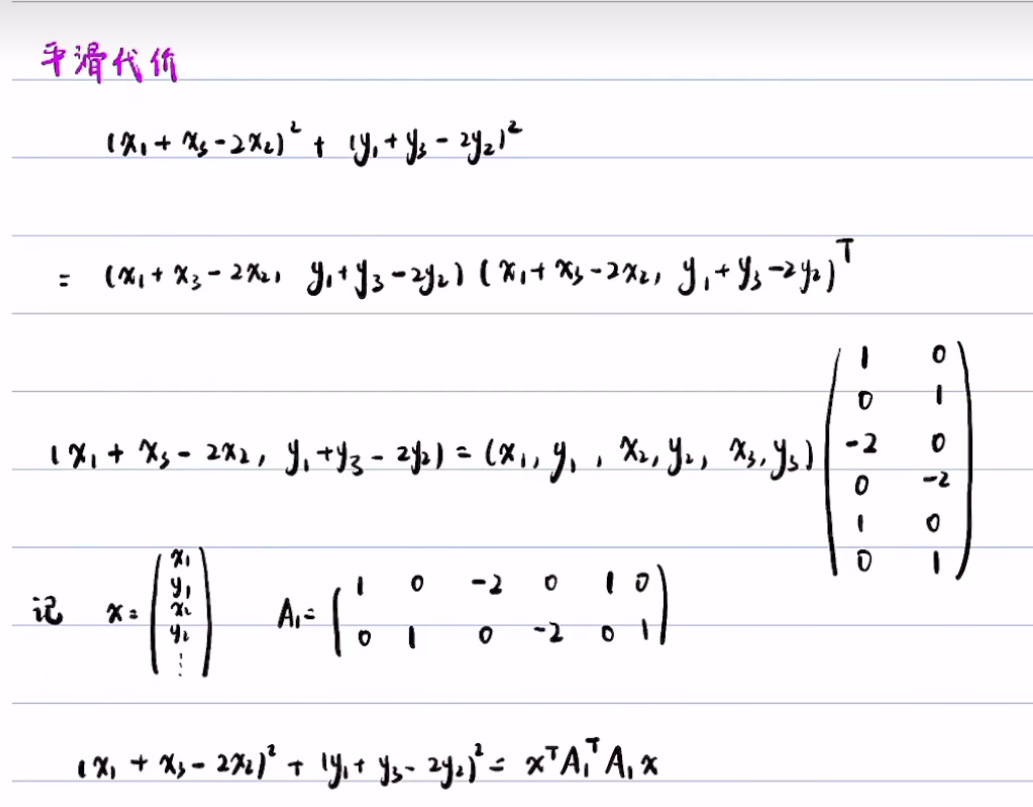 平滑代价
(x₁ + x₃ - 2x₂)² + (y₁ + y₃ - 2y₂)²
= (x₁ + x₃ - 2x₂, y₁ + y₃ - 2y₂) (x₁ + x₃ - 2x₂, y₁ + y₃ - 2y₂)ᵀ
(x₁ + x₃ - 2x₂, y₁ + y₃ - 2y₂) = (x₁, y₁, x₂, y₂, x₃, y₃)
1 0
0 1
-2 0
0 -2
1 0
0 1
记 x = (x₁ y₁ x₂ y₂ ⋮) A₁ =
1 0 -2 0 1 0
0 1 0 -2 0 1
(x₁ + x₃ - 2x₂)² + (y₁ + y₃ - 2y₂)² = xᵀA₁ᵀA₁x